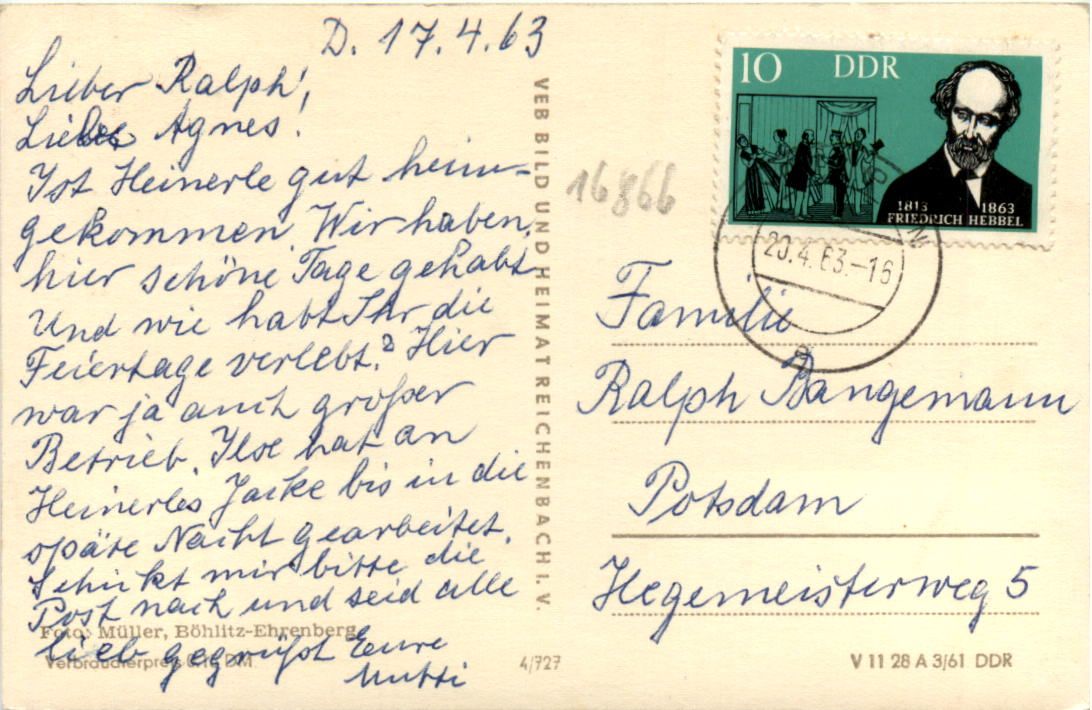 D. 17.4.63
Lieber Ralph!
Liebe Agnes!
Ist Heinerle gut heim-
gekommen. Wir haben
hier schöne Tage gehabt
Und wie habt Ihr die
Feiertage verlebt? Hier
war ja auch großer
Betrieb. Ilse hat an
Heinerles Jacke bis in die
späte Nacht gearbeitet.
Schickt mir bitte die
Post nach und seid alle
lieb gegrüßt Eure
Mutti
Foto: Müller, Böhlitz-Ehrenberg
Verbraucherpreis 0,15 DM
4/727
VEB BILD UND HEIMAT REICHENBACH I. V.
16866
10 DDR
1813 1863
FRIEDRICH HEBBEL
20.4.63.-16
Familie
Ralph Bangemann
Potsdam
Hegemeisterweg 5
V 11 28 A 3/61 DDR